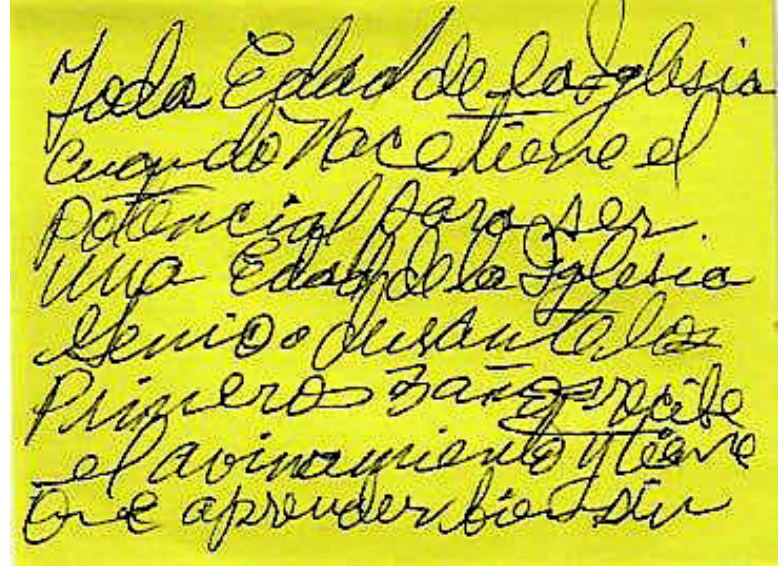 Toda Edad de la Iglesia
cuando Nace tiene el
Potencial para ser
una Edad de la Iglesia
Genio. durante los
Primeros 3 años recibe
el
y tiene
que aprender bien sin